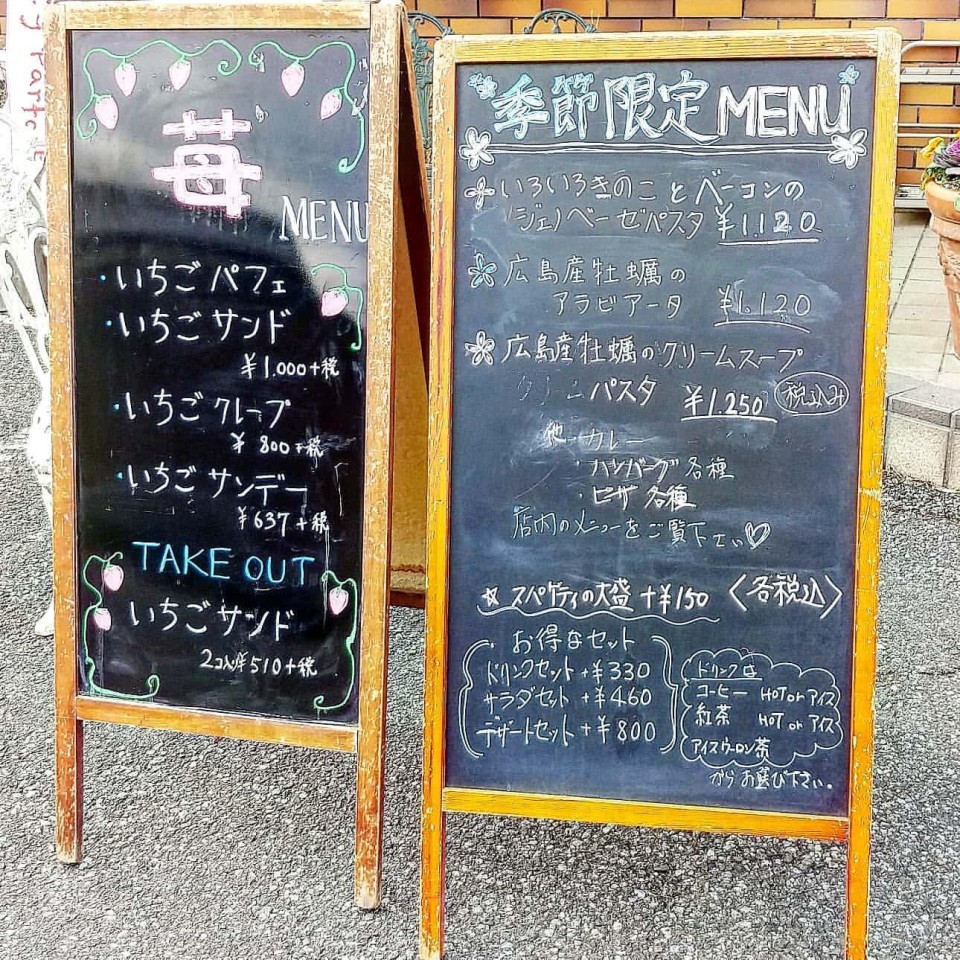 苺
MENU
・いちごパフェ
・いちごサンド
¥1.000+税
・いちごクレープ
¥800+税
・いちごサンデー
¥637+税
TAKE OUT
いちごサンド
2コ入¥510+税
季節限定MENU
いろいろきのことベーコンの
ジェノベーゼパスタ ¥1.120
広島産牡蠣の
アラビアータ ¥1.120
広島産牡蠣のクリームスープ
パスタ ¥1.250 税込み
他・カレー
・ハンバーグ各種
・ピザ 各種
店内のメニューをご覧下さい♡
☆スパゲティの大盛+¥150 〈各税込〉
お得なセット
ドリンクセット+¥330
サラダセット+¥460
デザートセット+¥800
ドリンクは
コーヒー HOT or アイス
紅茶 HOT or アイス
アイスウーロン茶
からお選び下さい。